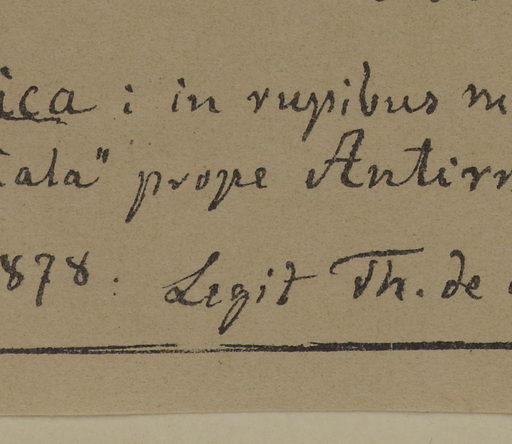 ica : in rupibus m
tala" prope Antirr
878. Legit Th. de